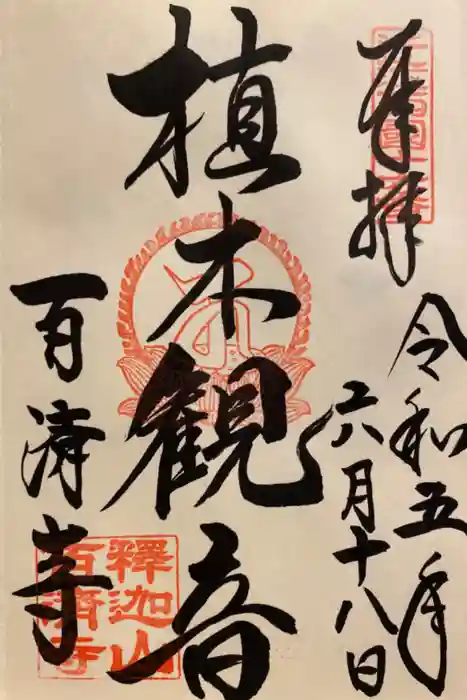 奉拝
令和五年
六月十八日
植木観音
百済寺
釋迦山
百濟寺